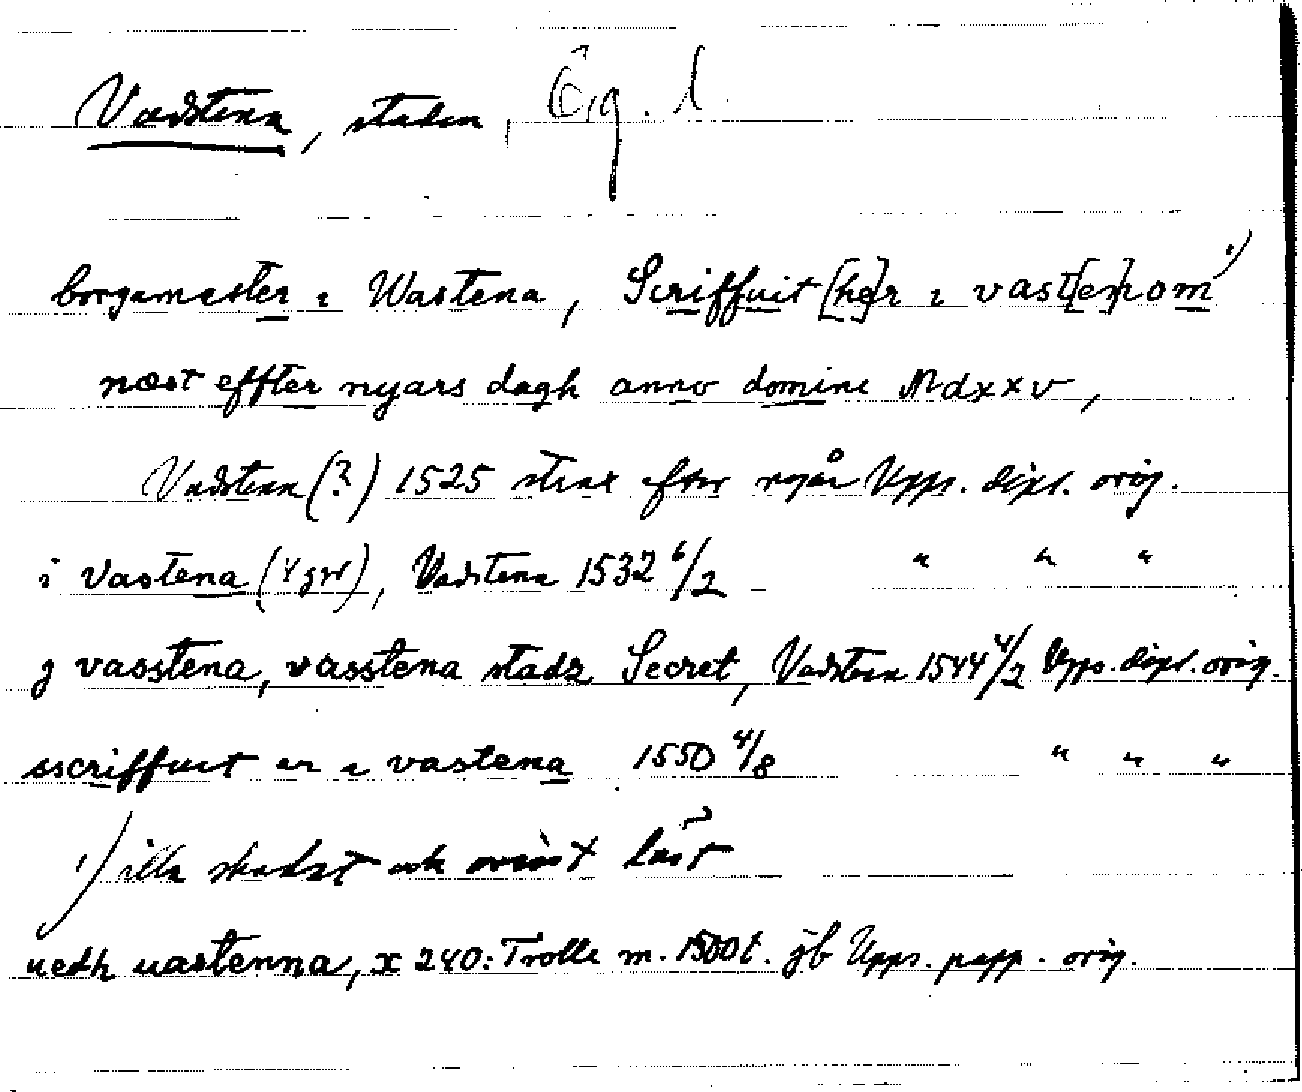 Vadstena, staden, Ög. l
borgamester i Wastena, Scriffuit [he]r i vast[en]om 1)
næst effter nyars dagh anno domini Mdxxv,
Vadstena (?) 1525 strax efter nyår Upps. dipl. orig.
i vastena (4 ggr), Vadstena 1532 6/2 " " "
j vasstena, vasstena stadz Secret, Vadstena 1544 4/2 Upps. dipl. orig.
sscriffuet er i vastena 1550 4/8 " " "
1) illa skadat och ovisst läst
uedh uastenna, x 240: Trolle m. 1500t. jb Upps. papp. orig.